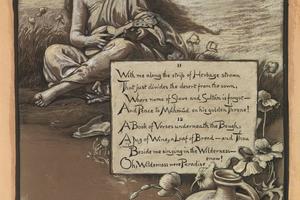 11
With me along the strip of Herbage strown
That just divides the desert from the sown,
Where name of Slave and Sultán is forgot —
And Peace to Mahmúd on his golden Throne!
12
A Book of Verses underneath the Bough,
A Jug of Wine, a Loaf of Bread — and Thou
Beside me singing in the Wilderness —
Oh, Wilderness were Paradise enow!